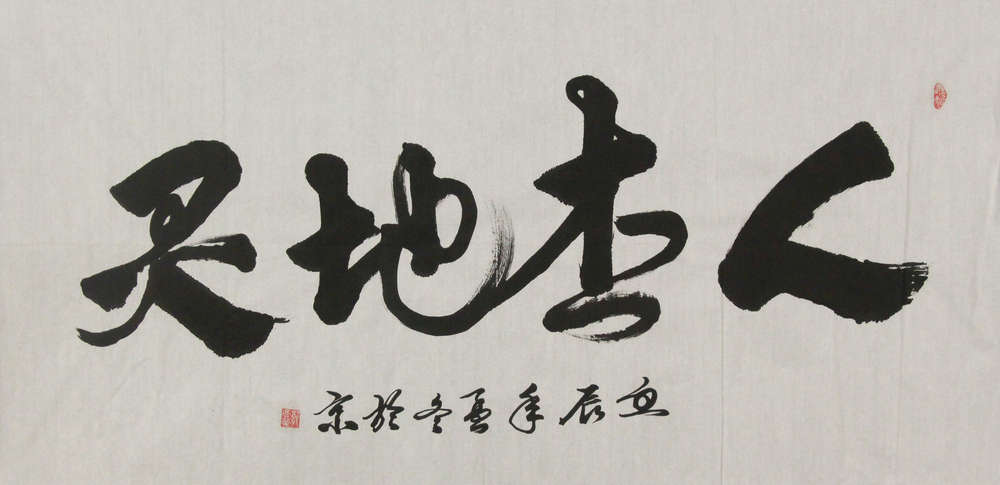 人杰地灵
辰年孟冬於京